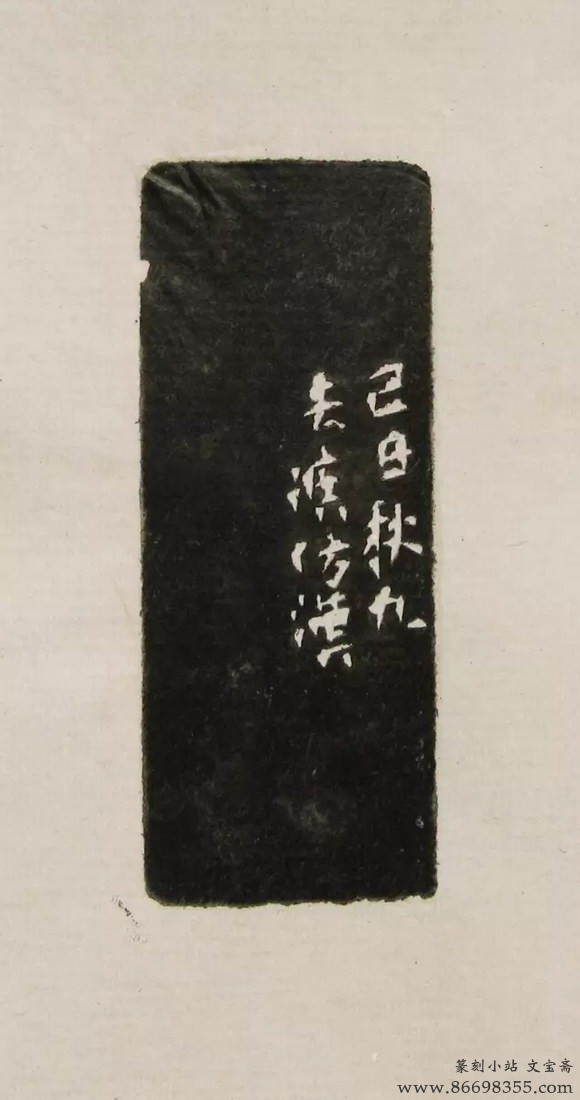 己丑秋九
去疾仿漢
篆刻小站 文宝斋
www.86698355.com